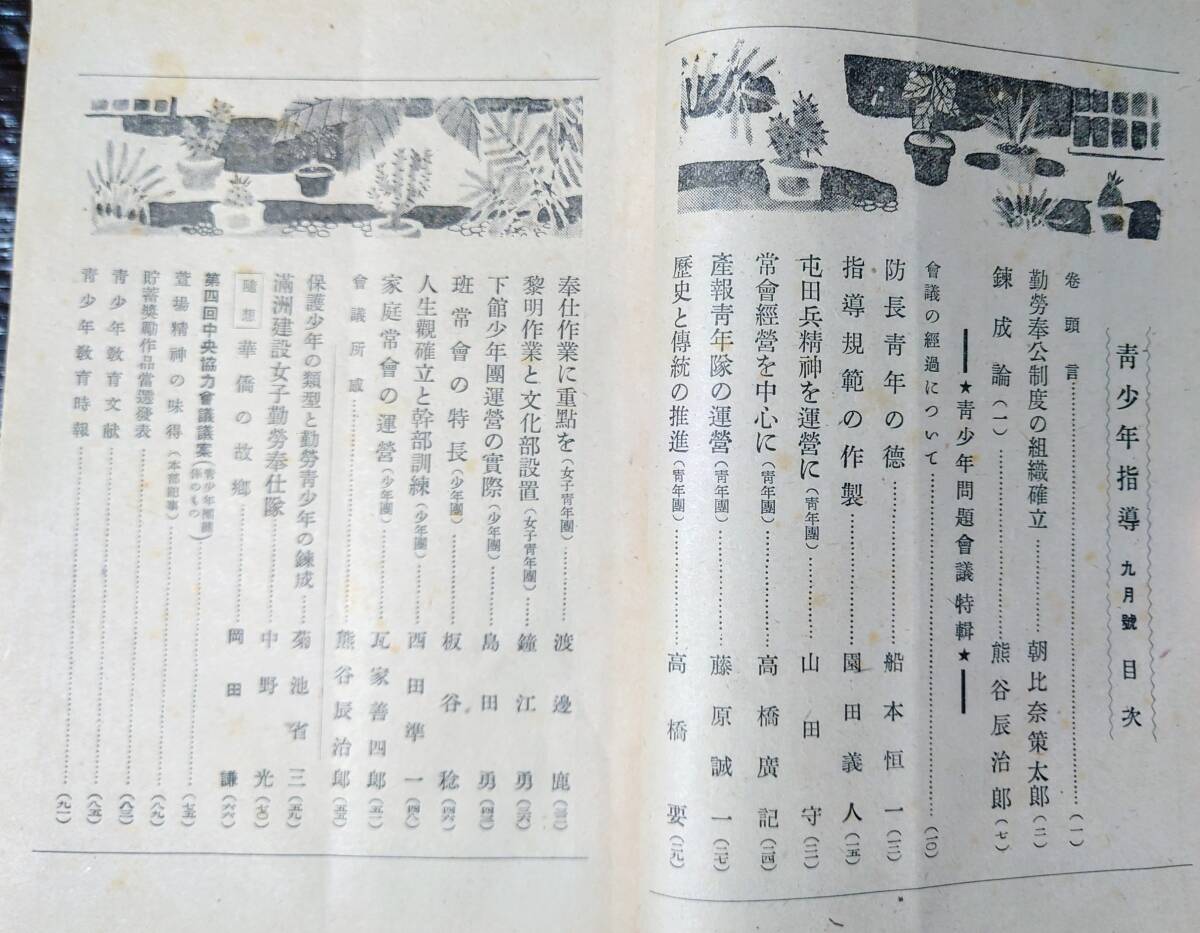 靑少年指導 九月號 目次
卷頭言……(一)
勤勞奉公制度の組織確立……朝比奈策太郎(二)
鍊成論(一)……熊谷辰治郎(七)
★靑少年問題會議特輯★
會議の經過について……(一〇)
防長靑年の德……船本恒一(一三)
指導規範の作製……園田義人(一五)
屯田兵精神を運營に(靑年團)……山田守(二一)
常會經營を中心に(靑年團)……高橋廣記(二四)
產報靑年隊の運營(靑年團)……藤原誠一(二七)
歷史と傳統の推進(靑年團)……高橋要(二九)
奉仕作業に重點を(女子靑年團)……渡邊鹿(三三)
黎明作業と文化部設置(女子靑年團)……鐘江勇(三六)
下館少年團運營の實際(少年團)……島田勇(四三)
班常會の特長(少年團)……板谷稔(四六)
人生觀確立と幹部訓練(少年團)……西田準一(四八)
家庭常會の運營(少年團)……瓦家善四郞(五一)
會議所感……熊谷辰治郞(五五)
保護少年の類型と勤勞靑少年の鍊成……菊池省三(五九)
滿洲建設女子勤勞奉仕隊……中野光(七〇)
隨想 華僑の故鄕……岡田謙(六六)
第四回中央協力會議議案(靑少年團關係のもの)……(七五)
萱場精神の味得(本部記事)……
貯蓄奬勵作品當選發表……(八九)
靑少年敎育文献……(八三)
靑少年敎育時報……(九一)